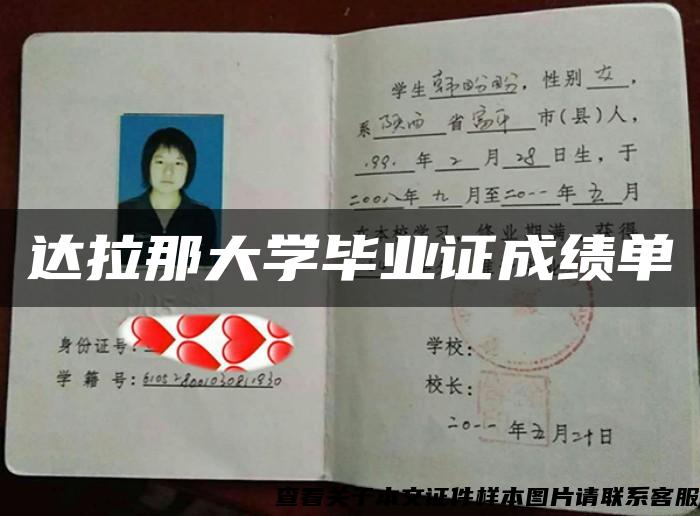 学生韩盼盼，性别女，
系陕西省富平市(县)人，
199.年2月28日生，于
二00八年九月至二0一一年五月
在本校学习，修业期满，获得
达拉那大学毕业证成绩单
身份证号：
学籍号：610528001030811930
学校：
校长：
二0一一年五月二十日
查看关于本文证件样本图片请联系客服